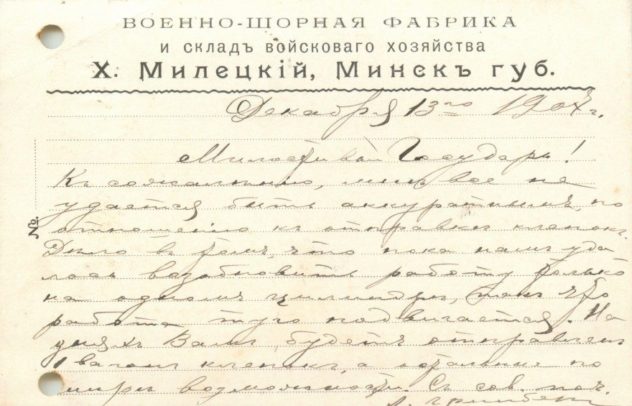 ВОЕННО-ШОРНАЯ ФАБРИКА
И СКЛАДЪ ВОЙСКОВАГО ХОЗЯЙСТВА
Х. Милецкій, Минскъ губ.
Декабря 13го 1907г.
№
Милостивый Государь!
Къ сожалѣнію, мнѣ все не
удается быть аккуратнымъ, по
отношенію къ отправкѣ клепокъ.
Дѣло въ томъ, что пока намъ уда
лось возобновить работу только
на одномъ цилиндрѣ, такъ что
работа туго подвигается. На
дняхъ Вамъ будетъ отправленъ
1 вагонъ клепокъ, а остальные по
мѣрѣ возможности. Съ сов. поч.